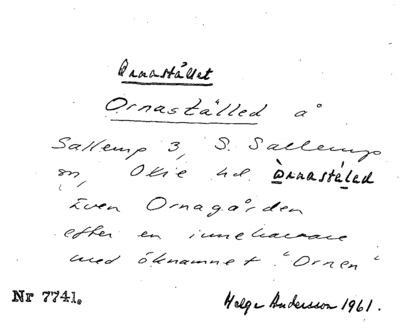 Ornastället
Ornaställed å
Sallerup 3, S. Sallerup
sn, Oxie hd. Òrnastäled
Även Ornagården
efter en innehavare
med öknamnet "Ornen"
Nr 7741. Helge Andersson 1961.